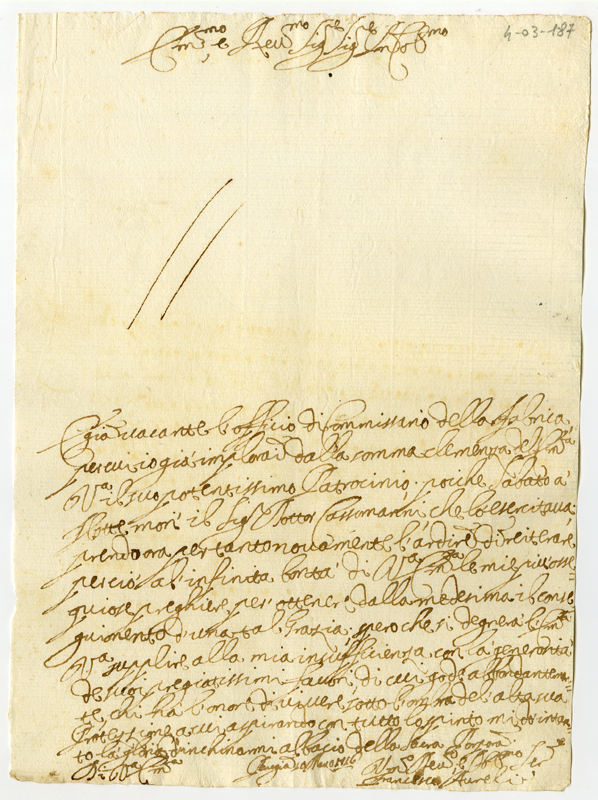 4-03-187
Em.mo e Rev.mo Sig.re Sig.re
È già vacante l'officio di Commissario della Fabrica,
per cui io già implorai dalla somma clemenza dell'Em.za
V.ra il suo potentissimo Patrocinio; poiche sabato à
Notte morì il Sig.r Dottor che l'esercitava;
prendo ora per tanto novamente l'ardire di reiterare
perciò all'infinita bontà di V.ra Em.za le mie più osse-
quiose preghiere per ottener dalla medesima il conse-
guimento d'una tal Grazia; spero che si degnerà l'Em.za
V.ra supplire alla mia insufficienza con la generosità
de suoi pregiatissimi favori, di cui gode abbondantemen-
te, chi hà l'onor di vivere sotto l'ombra dell'alta sua
Protezzione, a cui aspirando con tutto lo spirito mi do intan-
to la gloria d'inchinarmi al bacio della Sacra Porpora
Di V.ra Em.za
Perugia
Francesco Aureli